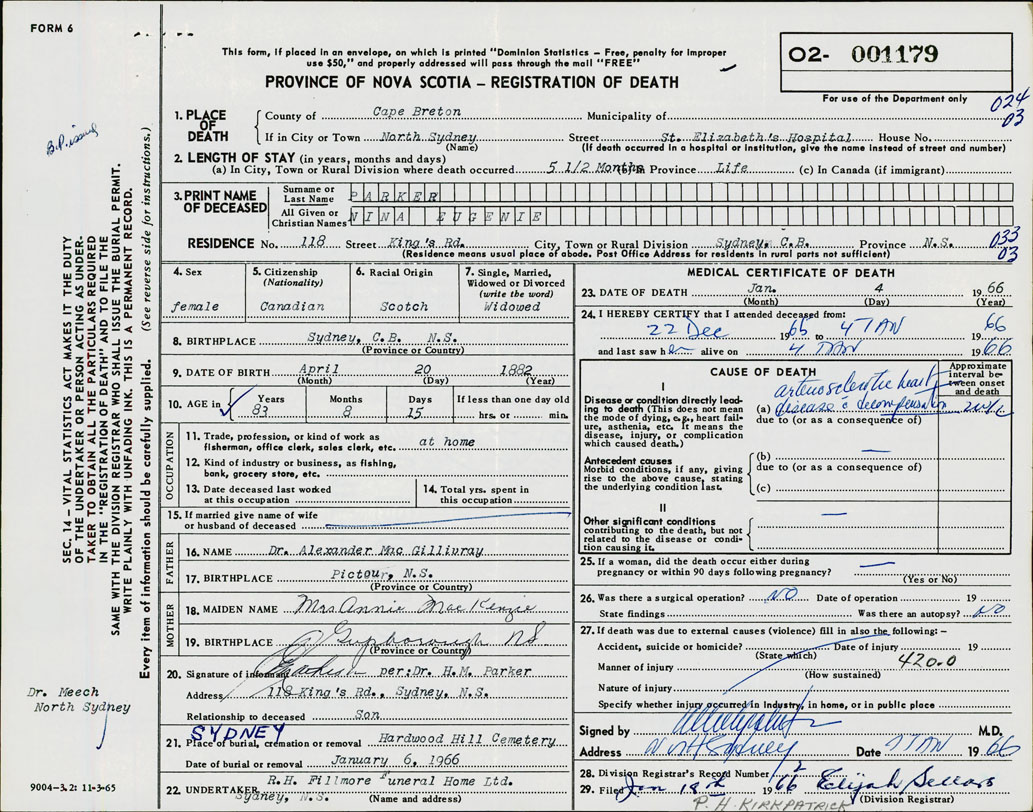 FORM 6
This form, if placed in an envelope, on which is printed "Dominion Statistics – Free, penalty for improper
use $50," and properly addressed will pass through the mail "FREE"
PROVINCE OF NOVA SCOTIA – REGISTRATION OF DEATH
02- 001179
For use of the Department only
024
03
1. PLACE OF DEATH
County of Cape Breton Municipality of
If in City or Town North Sydney Street St. Elizabeth's Hospital House No.
(Name) (If death occurred in a hospital or institution, give the name instead of street and number)
2. LENGTH OF STAY (in years, months and days)
(a) In City, Town or Rural Division where death occurred 5 1/2 Months (b) In Province Life (c) In Canada (if immigrant)
3. PRINT NAME OF DECEASED
Surname or Last Name PARKER
All Given or Christian Names NINA EUGENIE
RESIDENCE No. 118 Street King's Rd. City, Town or Rural Division Sydney, C.B. Province N.S.
(Residence means usual place of abode. Post Office Address for residents in rural parts not sufficient)
033
03
4. Sex
female
5. Citizenship
(Nationality)
Canadian
6. Racial Origin
Scotch
7. Single, Married,
Widowed or Divorced
(write the word)
Widowed
8. BIRTHPLACE Sydney, C.B. N.S.
(Province or Country)
9. DATE OF BIRTH April 20 1882
(Month) (Day) (Year)
10. AGE in
Years 83
Months 8
Days 15
If less than one day old
hrs. or min.
OCCUPATION
11. Trade, profession, or kind of work as
fisherman, office clerk, sales clerk, etc. at home
12. Kind of industry or business, as fishing,
bank, grocery store, etc.
13. Date deceased last worked
at this occupation
14. Total yrs. spent in
this occupation
15. If married give name of wife
or husband of deceased
FATHER
16. NAME Dr. Alexander Mac Gillivray
17. BIRTHPLACE Pictou, N.S.
(Province or Country)
MOTHER
18. MAIDEN NAME Mrs Annie MacKenzie
19. BIRTHPLACE Guysborough NS
(Province or Country)
20. Signature of informant per: Dr. H.M. Parker
Address 118 King's Rd., Sydney, N.S.
Relationship to deceased Son
SYDNEY
21. Place of burial, cremation or removal Hardwood Hill Cemetery
Date of burial or removal January 6, 1966
22. UNDERTAKER R.H. Fillmore Funeral Home Ltd.
Sydney, N.S. (Name and address)
MEDICAL CERTIFICATE OF DEATH
23. DATE OF DEATH Jan. 4 1966
(Month) (Day) (Year)
24. I HEREBY CERTIFY that I attended deceased from:
22 Dec 1965 to 4 JAN 1966
and last saw her alive on 4 JAN 1966
CAUSE OF DEATH
Approximate interval between onset and death
I
Disease or condition directly leading to death (This does not mean the mode of dying, e.g., heart failure, asthenia, etc. It means the disease, injury, or complication which caused death.)
(a) arteriosclerotic heart
disease c decompensation
due to (or as a consequence of)
Antecedent causes
Morbid conditions, if any, giving rise to the above cause, stating the underlying condition last.
(b)
due to (or as a consequence of)
(c)
II
Other significant conditions
contributing to the death, but not related to the disease or condition causing it.
25. If a woman, did the death occur either during
pregnancy or within 90 days following pregnancy?
(Yes or No)
26. Was there a surgical operation? NO Date of operation 19
State findings Was there an autopsy? NO
27. If death was due to external causes (violence) fill in also the following: –
Accident, suicide or homicide? Date of injury 19
(State which)
Manner of injury 420.0
(How sustained)
Nature of injury
Specify whether injury occurred in Industry, in home, or in public place
Signed by M.D.
Address North Sydney Date JAN 1966
28. Division Registrar's Record Number 2
29. Filed Jan 18th 1966 Elijah Sellars
(Division Registrar)
P. H. KIRKPATRICK
B.P. issued
SEC. 14 – VITAL STATISTICS ACT MAKES IT THE DUTY
OF THE UNDERTAKER OR PERSON ACTING AS UNDER-
TAKER TO OBTAIN ALL THE PARTICULARS REQUIRED
IN THE "REGISTRATION OF DEATH" AND TO FILE THE
SAME WITH THE DIVISION REGISTRAR WHO SHALL ISSUE THE BURIAL PERMIT.
WRITE PLAINLY WITH UNFADING INK. THIS IS A PERMANENT RECORD.
Every item of information should be carefully supplied. (See reverse side for instructions.)
Dr. Meech
North Sydney
9004-3.2: 11-3-65